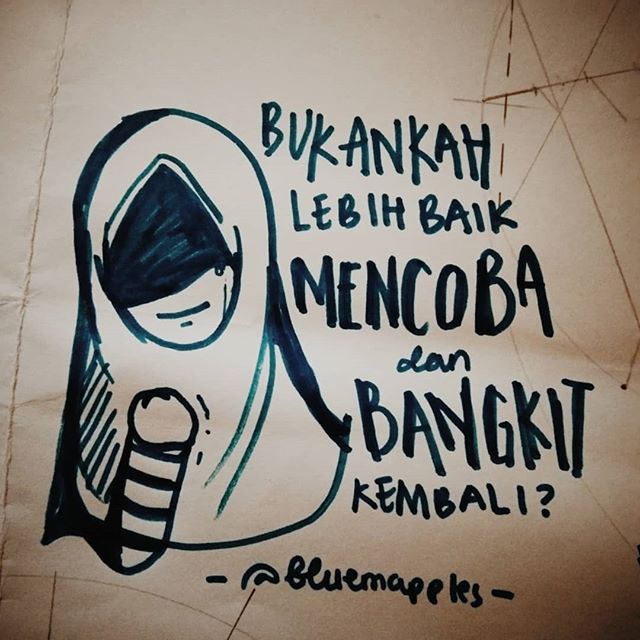 BUKANKAH
LEBIH BAIK
MENCOBA
dan
BANGKIT
KEMBALI?
- @bluemapples -